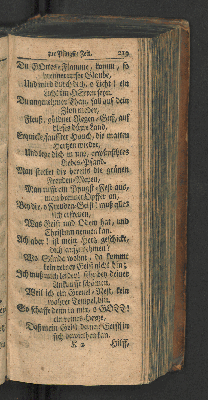 zur Pfingst-Zeit. 219
Du GOttes-Flamme, komm, so
brennet unser Glaube,
Und wird durch dich, o Licht! ein
Licht im HErren seyn.
Du angenehmer Thau, fall auf dein
Zion nieder,
Fleuß, güldner Regen-Guß, auf
dieses dürre Land,
sanffter Hauch, die matten
Hertzen wieder,
Und lege dich in uns,
Liebes-Pfand.
Man stecket dir bereits die grünen
Freuden-Meyen,
Man rufft ein Pfingst-Fest aus,
man
Bey dir, o Freuden-Geist! muß alles
sich erfreuen,
Was Geist und Odem hat, und
Christum nennen kan.
Ach aber! ist mein Hertz geschickt,
dich anzunehmen?
Wo Sünde wohnt, da kommt
dein Geist nicht hin;
Ich muß mich
Ankunfft schämen,
Weil ich ein Greuel-Nest, kein
wahrer Tempel bin.
So schaffe denn in mir, o GOTT!
ein reines Hertze,
Daß mein Geist deinen Geist in
sich
K 2 Hilff,